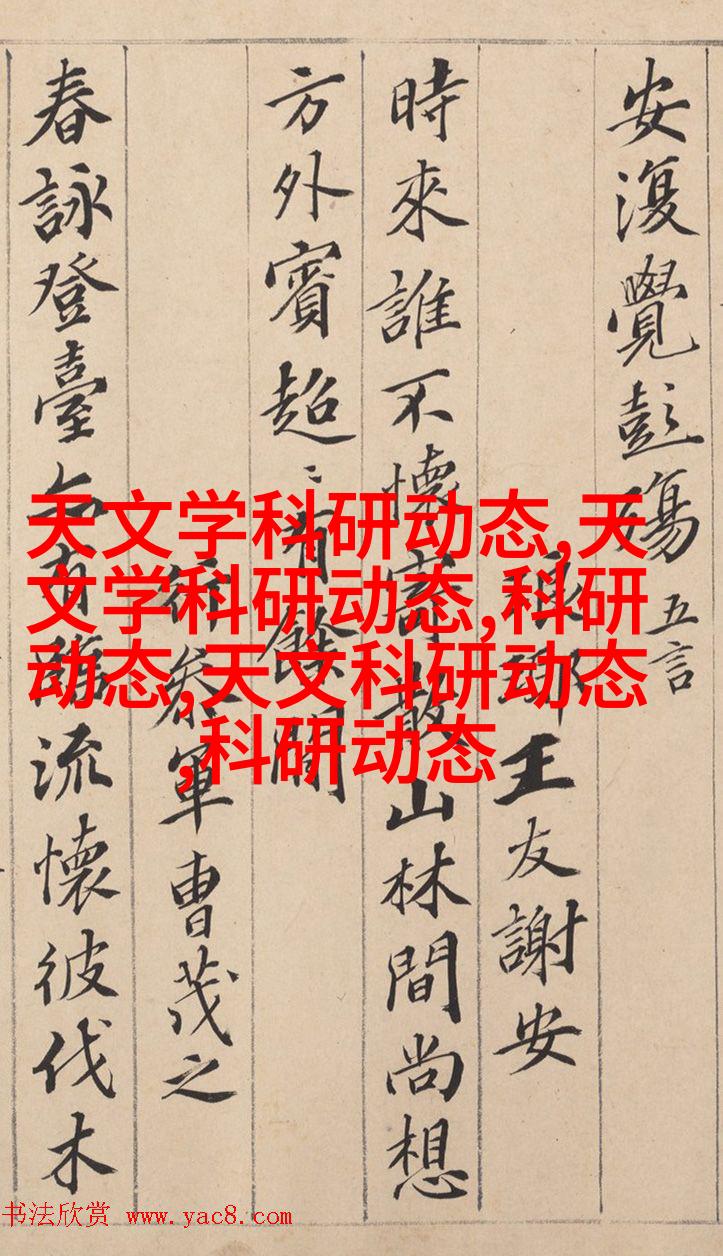 安復覺彭殤 五言
琅琊王友謝安
時來誰不懷寄散山林間尚想
方外賓超〻有餘閒
行參軍曹茂之
春詠登臺亦有臨流懷彼伐木
天文学科研动态,天
文学科研动态,科研
动态,天文科研动态
,科研动态
书法欣赏 www.yac8.com